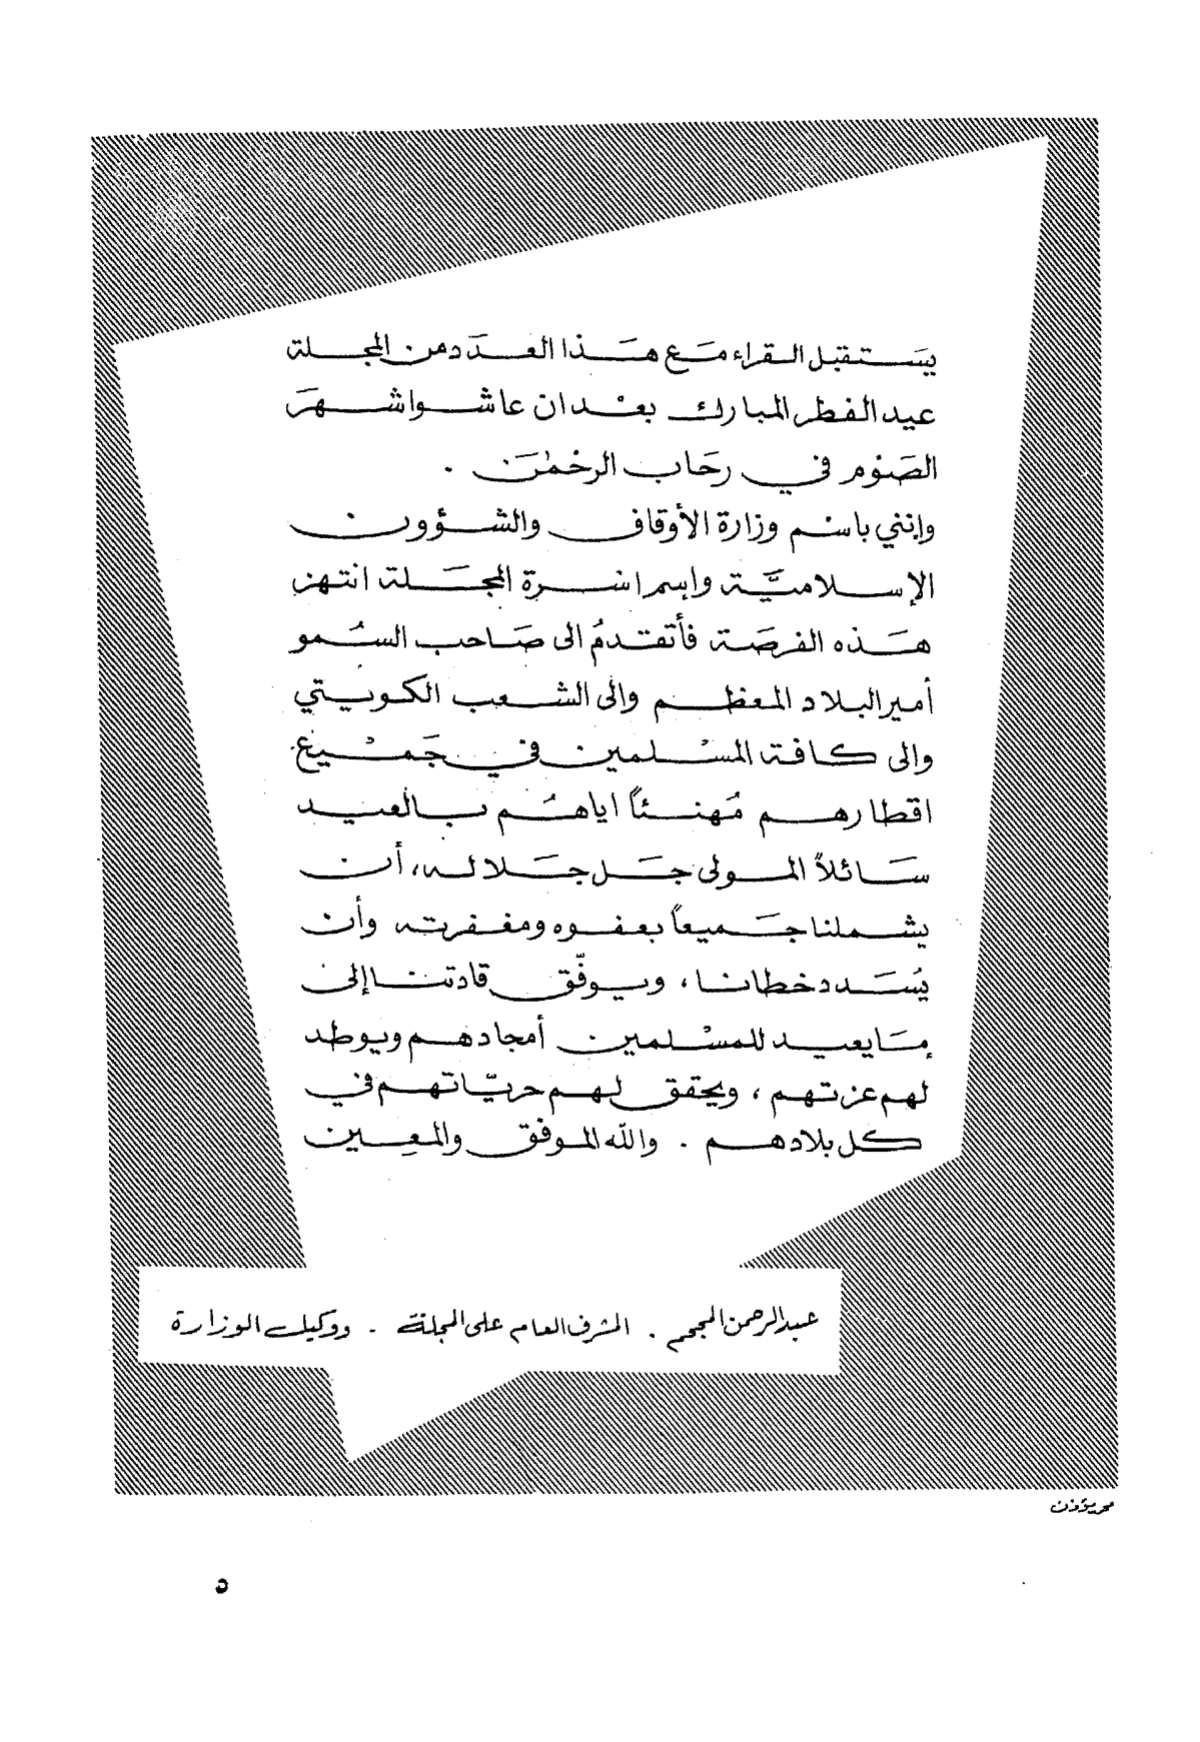 يستقبل القراء مَع هَذا العدَد من المجلة
عيد الفطر المبارك بعْد ان عاشوا شهرَ
الصَوْم في رحَاب الرحْمٰن .
وإنني باسْم وزارة الأوقاف والشؤون
الإسلاميَّة وإسم اسرة المجَلة انتهز
هَذه الفرصَة فأتقدمُ الى صَاحب السُمو
أمير البلاد المعظم والى الشعب الكويتي
والى كافة المسْلمين في جَمْيع
اقطارهم مُهنئاً اياهُم بالعيد
سَائلاً المولى جَل جَلاله، أن
يشملنا جَميعاً بعفوه ومغفرته وأن
يُسَدد خطانا ، ويوفّق قادتنا إلى
مَا يعيد للمسْلمين أمجادهم ويوطد
لهم عزتهم ، ويحقق لهم حريّاتهم في
كل بلادهم . والله الموفق والمعِين
عبد الرحمن المجحم . المشرف العام على المجلة . ووكيل الوزارة
٥